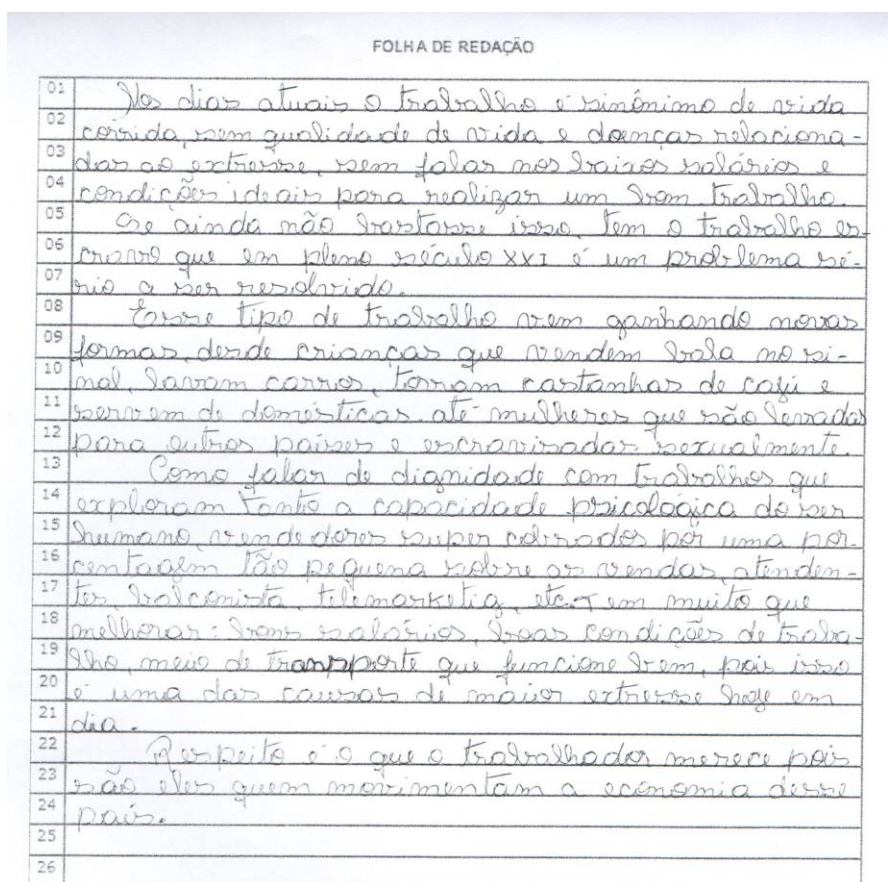 FOLHA DE REDAÇÃO
01 Nos dias atuais o trabalho é sinônimo de vida
02 corrida, sem qualidade de vida e doenças relaciona-
03 das ao extresse, sem falar nos baixos salários e
04 condições ideais para realizar um bom trabalho.
05 Se ainda não bastasse isso, tem o trabalho es-
06 cravo que em pleno século XXI é um problema sé-
07 rio a ser resolvido.
08 Esse tipo de trabalho vem ganhando novas
09 formas, desde crianças que vendem bala no si-
10 nal, lavam carros, torram castanhas de caju e
11 servem de domésticas até mulheres que são levadas
12 para outros países e escravisadas sexualmente.
13 Como falar de dignidade com trabalhos que
14 exploram tanto a capacidade psicológica do ser
15 humano, vendedores super cobrados por uma por-
16 centagem tão pequena sobre as vendas, atenden-
17 tes, balconista, telemarketig, etc. Tem muito que
18 melhorar: bons salários, boas condições de traba-
19 lho, meio de transporte que funcione bem, pois isso
20 é uma das causas de maior extresse hoje em
21 dia.
22 Respeito é o que o trabalhador merece pois
23 são eles quem movimentam a economia desse
24 país.
25
26